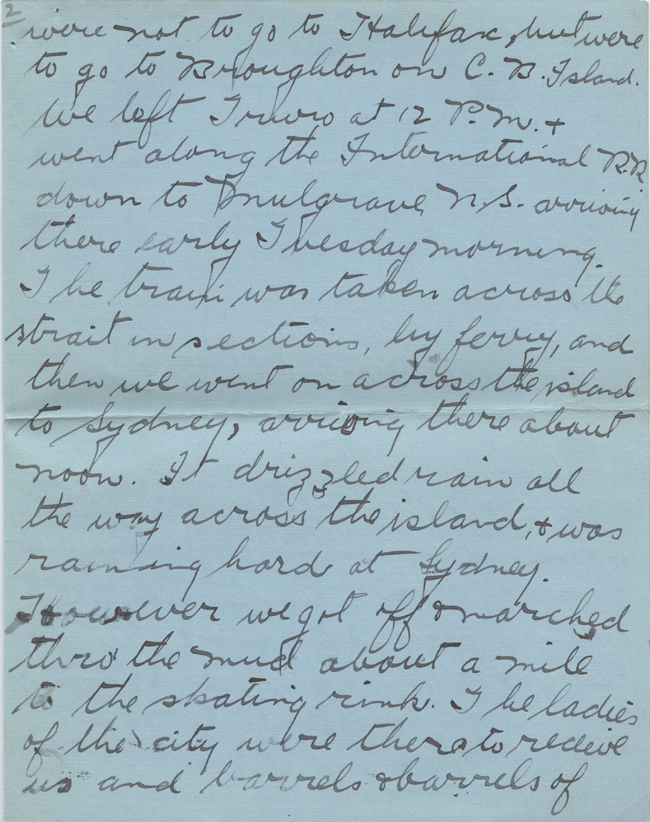 2
were not to go to Halifax, but were
to go to Broughton on C. B. Island.
We left Truro at 12 P.M. &
went along the International R.R.
down to Mulgrave, N.S. arriving
there early Tuesday morning.
The train was taken across the
strait in sections, by ferry, and
then we went on across the island
to Sydney, arriving there about
noon. It drizzled rain all
the way across the island, & was
raining hard at Sydney.
However we got off & marched
thro the mud about a mile
to the skating rink. The ladies
of the city were there to receive
us and barrels & barrels of